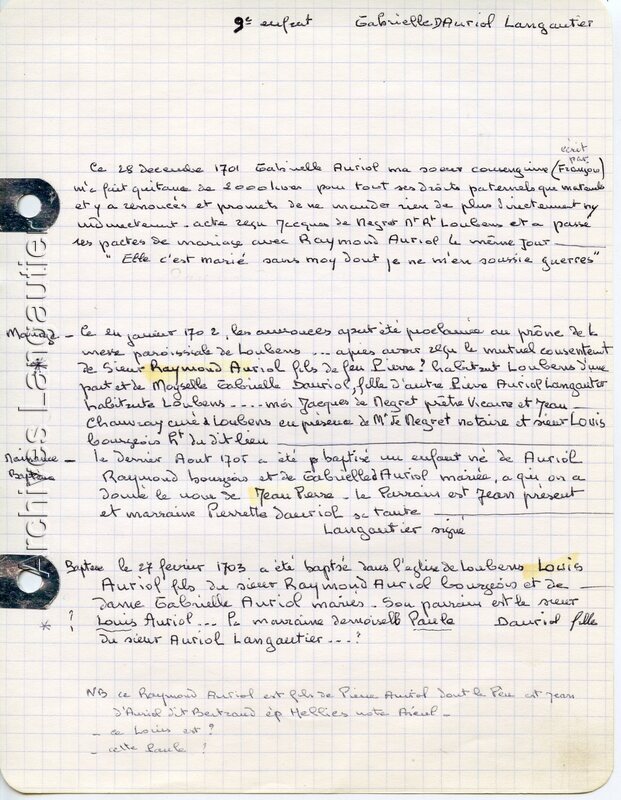 9e enfant Gabrielle D'Auriol Langautier
écrit
par
Ce 28 decembre 1701 Gabrielle Auriol ma soeur consenguine (François)
m'a fait quitance de 2000 livres pour tout ses droits paternels que maternels
et y a renoncés et promets de ne mander rien de plus directement ny
indirectement. acte reçu Jacques de Negret Nre Rt Loubens et a passé
ses pactes de mariage avec Raymond Auriol le même jour
" Elle c'est marié sans moy dont je ne m'en soussie guerres"
Mariage - Ce en janvier 1702, les annonces ayant été proclamée au prône de la
messe paroissiale de Loubens ... apies avoir reçu le mutuel consentement
de Sieur Raymond Auriol fils de feu Pierre? habitant Loubens d'une
part et de Moyselle Gabrielle Dauriol, fille d'autre Pierre Auriol Langautier
habitante Loubens .... moi Jacques de Negret prêtre Vicaire et Jean
Chauvray curé à Loubens en présence de Me Negret notaire et sieur Louis
bourgeois Rt du dit lieu
Naissance
Bapteme
- le dernier Aout 1705 a été baptisé un enfant né de Auriol
Raymond bourgois et de Gabrielle d'Auriol mariée, a qui on a
donné le nom de Jean Pierre - le Parrain est Jean present
et marraine Pierrette dauriol sa tante
Langautier signé
Bapteme le 27 fevrier 1703 a été baptsé dans l'eglise de Loubens Louis
Auriol fils du sieur Raymond Auriol bourgeois et de
dame Gabrielle Auriol mariés - Son parain est le sieur
* ? Louis Auriol ... La marraine demoiselle Paule Dauriol fille
du sieur Auriol Langautier ...?
NB ce Raymond Auriol est fils de Pierre Auriol dont le Père est Jean
d'Auriol dit Bertrand ép Hellies notre Aïeul -
- ce Louis est ?
- cette Paule ?
Archives Langautier